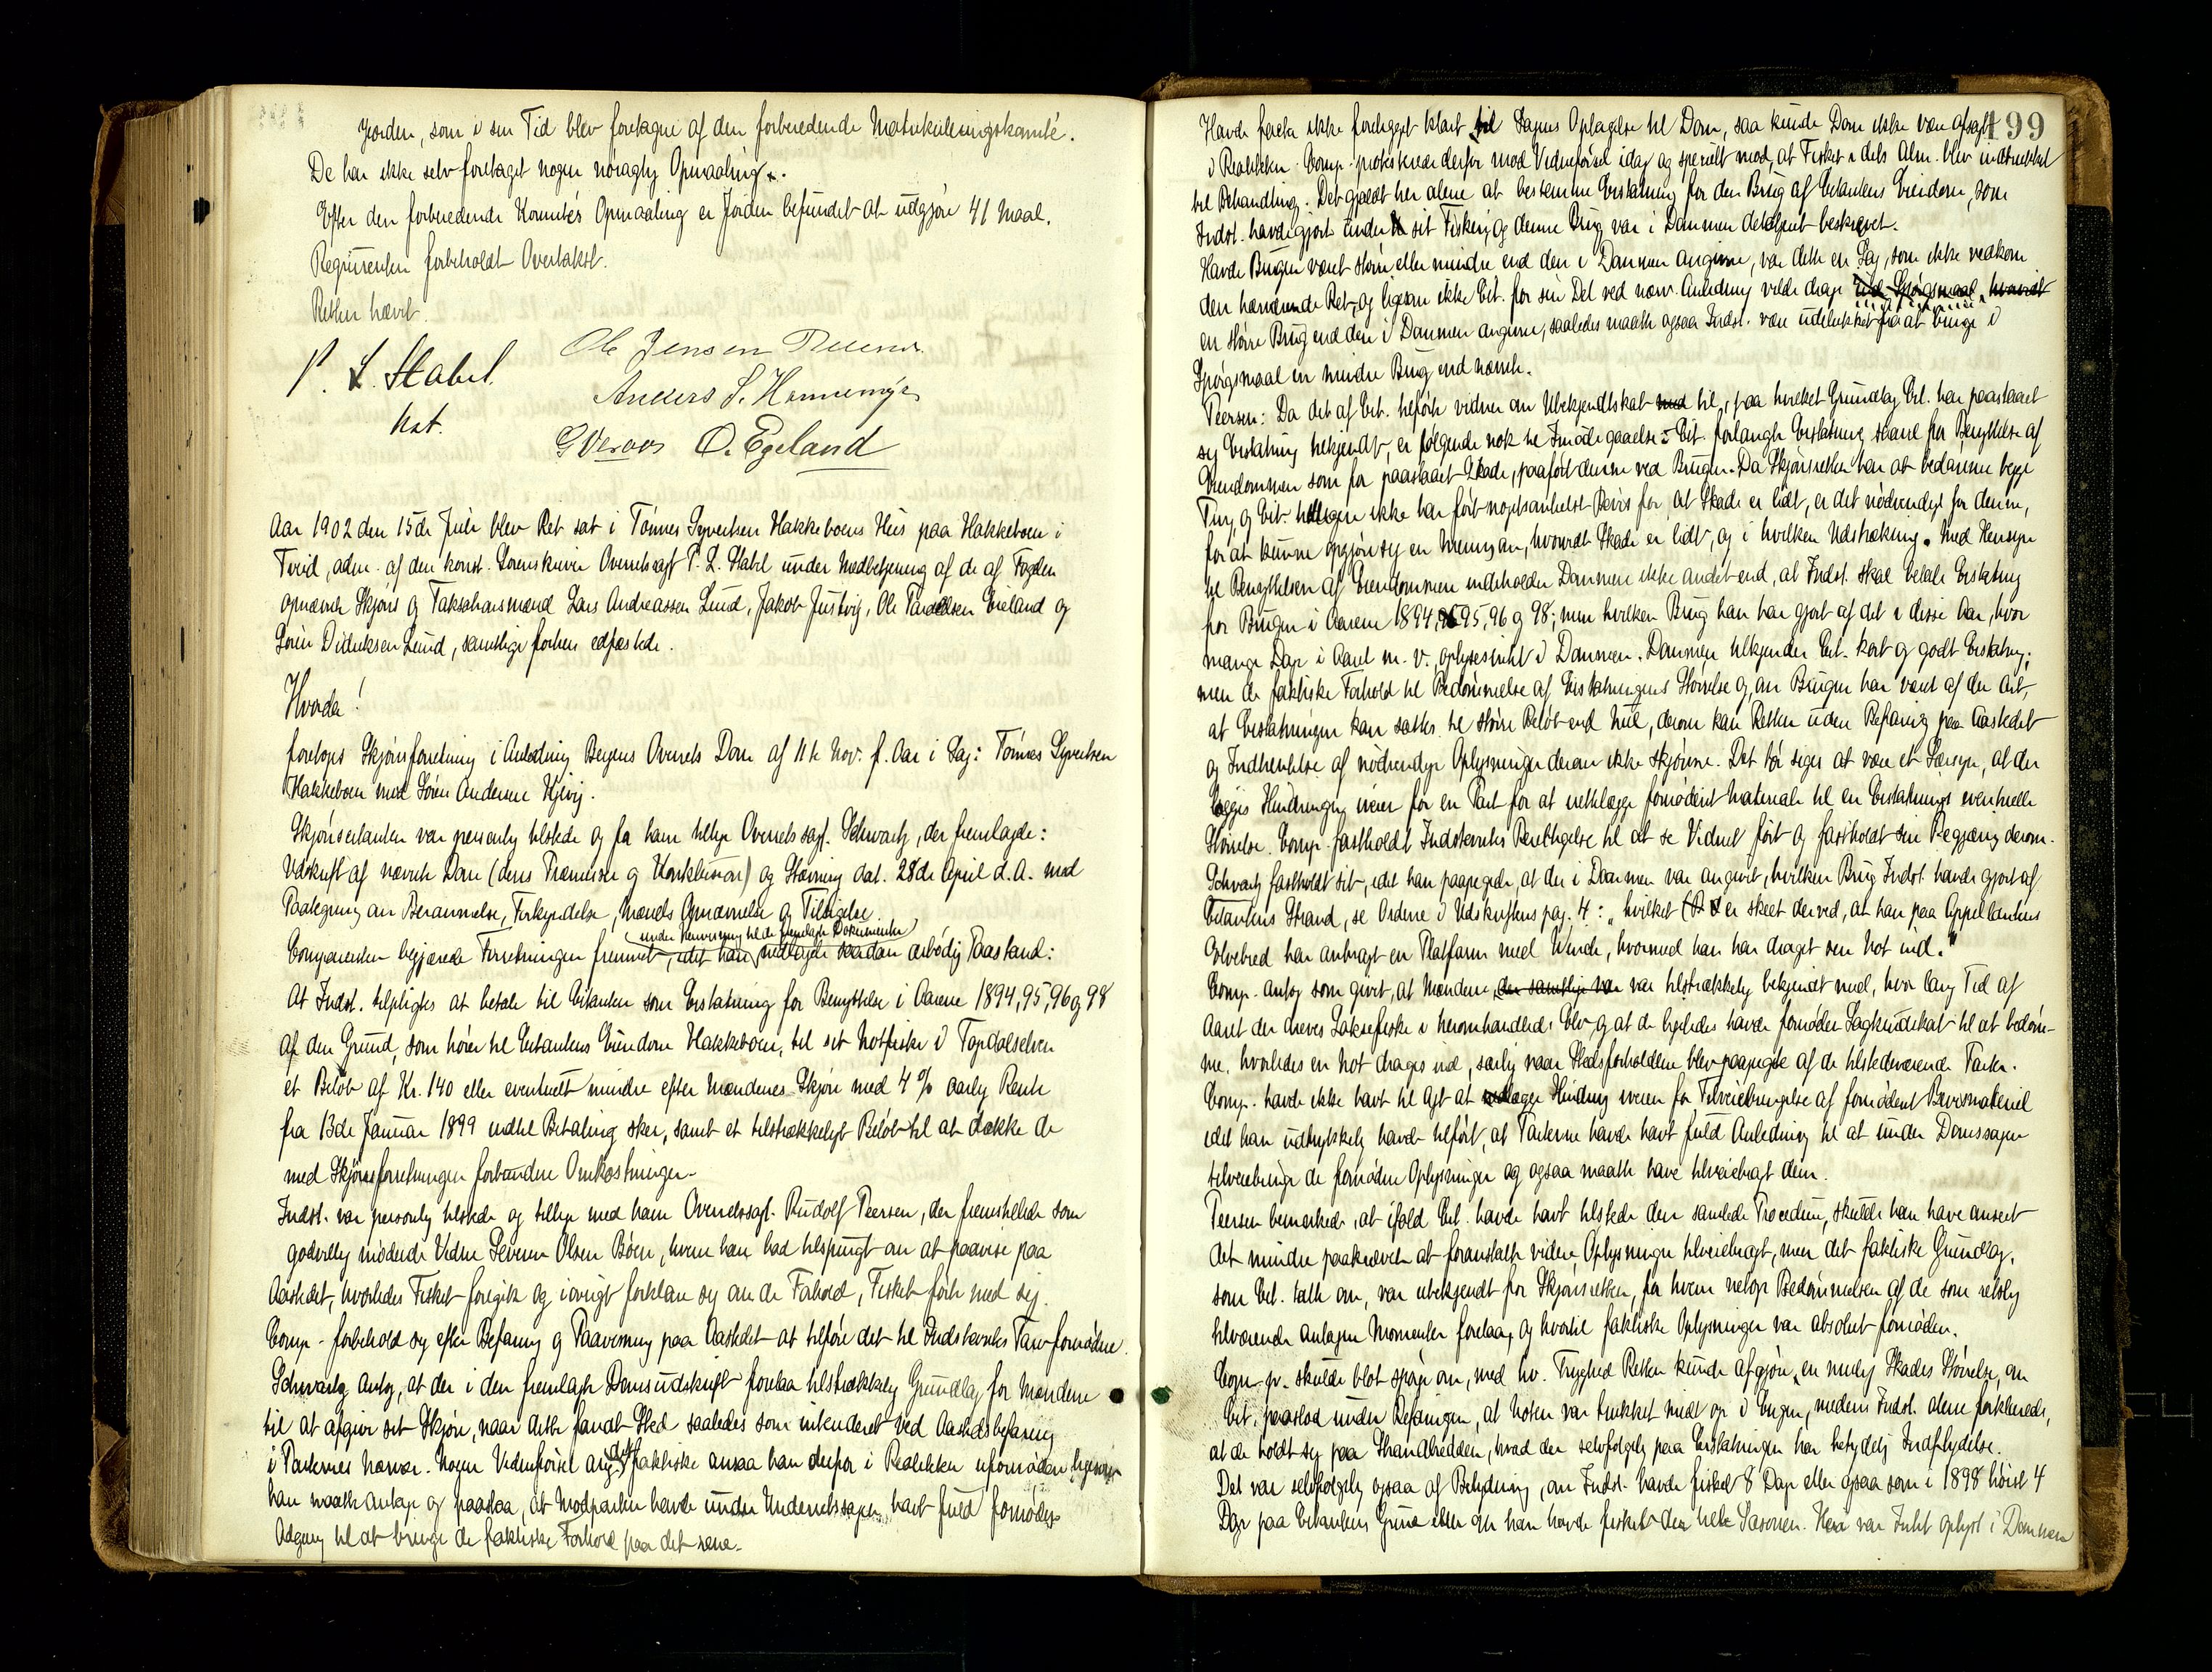 Jorden, som i sin Tid blev foretagne af den forberedende Matrikuleringskomité.
De har ikke selv foretaget nogen nöiagtig Opmaaling.
Efter den forberedende Komités Opmaaling er Jorden befundet at udgjöre 41 Maal.
Requirenten forbeholdt Overtakst.
Retten hævet.
P. L. Stabel
Kst.
Ole Jensen
Anders S. Hannemyr
G Veraas O. Egeland
Aar 1902 den 15de Juli blev Ret sat i Tönnes Syvertsen Hakkeboens Hus paa Hakkeboen i
Tveid, adm. af den konst. Sorenskriver Overretssagf. P. L. Stabel under Medbetjening af de af Fogden
opnævnte Skjöns og Taksationsmænd Lars Andreassen Lund, Jakob Justvig, Ole Taraldsen Ereland og
Sören Didriksen Lund, samtlige forhen edfæstede.
Hvorda!
foretoges Skjönsforretning i Anledning Bergens Overrets Dom af 11te Nov. f. Aar i Sag: Tönnes Syvertsen
Hakkeboen mod Sören Andersen Kjevig.
Skjönscitanten var personlig tilstede og for ham tillige Overretssagf. Schwartz, der fremlagde:
Udskrift af nævnte Dom (dens Præmisser og Konklusion) og Stævning dat. 28de April d.A. med
Paategning om Berammelse, Forkyndelse, Mænds Opnævnelse og Tilsigelse.
under Henvisning til de fremlagte Dokumenter
Comparenten begjærede Forretningen fremmet, idet han nedlagde saadan ærbödig Paastand:
At Indst. tilpligtes at betale til Citanten som Erstatning for Benyttelse i Aarene 1894, 95, 96 og 98
af den Grund, som hörer til Citantens Eiendom Hakkeboen, til sit Notfiske i Topdalselven
et Belöb af Kr. 140 eller eventuelt mindre efter Mændenes Skjön med 4 % aarlig Rente
fra 13de Januar 1899 indtil Betaling sker, samt et tilstrækkeligt Belöb til at dække de
med Skjönsforretningen forbundne Omkostninger.
Indst. var personlig tilstede og tillige med ham Overretssagf. Rudolf Peersen, der fremstillede som
godvillig mödende Vidne Severin Olsen Böen, hvem han bad tilspurgt om at paavise paa
Aastedet, hvorledes Fisket foregik og iövrigt forklare sig om de Forhold, Fisket förte med sig.
Comp. forbeholdt sig efter Befaring og Paavisning paa Aastedet at tilföre det til Indstævntes Tarv fornödne.
Schwartz antog, at der i den fremlagte Domsudskrift forelaa tilstrækkelig Grundlag for Mændene
til at afgive sit Skjön, naar dette fandt Sted saaledes som intenderet ved Aastedsbefaring
i Parternes Nærvær. Nogen Vidneförsel ang. det faktiske ansaa han derfor i Realiteten uformöden, ligesom
han maatte antage og paastaa, at Modparten havde under Underretssagen havt fuld formöden
Adgang til at bringe de faktiske Forhold paa det rene.
199
Havde ikke foreligget klart til Sagens Optagelse til Dom, saa kunde Dom ikke være afsagt
i Realiteten. Comp. protesterede derfor mod Vidneförsel idag og specielt mod, at Fisket i dets Alm. blev inddtrukket
til Behandling. Det gjaldt her alene at bestemme Erstatning for den Brug af Citantens Eiendom, som
Indst. havde gjort under sit Fiskeri, og denne Brug var i Dommen detaljeret beskrevet.
Havde Brugen været större eller mindre end den i Dommen angivne, var dette en Sag, som ikke vedkom
den nærværende Ret, og ligesom ikke Cit. for sin Del ved nærv. Anledning vilde drage ind Spörgsmaal, hvorvidt
en större Brug end den i Dommen angivne, saaledes maatte ogsaa Indst. være udelukket fra at bringe i
Spörgsmaal en mindre Brug end nævnte.
Peersen: Da det af Cit. tilförte vidner om Ubekjendtskab med til, paa hvilket Grundlag Cit. har paastaaet
sig Erstatning tilkjendt, er fölgende nok til Imödegaaelse: Cit. forlangte Erstatning saavel for Benyttelse af
Eiendommen som for paastaaet Skade, paafört denne ved Brugen. Da Skjönsretten har at bedömme begge
Ting, og Cit. tilligere ikke har fört nogetsomhelst Bevis for at Skade er lidt, er det nödvendigt for denne,
for at kunne opgjöre sig en Mening om, hvorvidt Skade er lidt, og i hvilken Udstrækning. Med Hensyn
til Benyttelsen af Eiendommen indeholder Dommen ikke andet end, at Indst. skal betale Erstatning
for Brugen i Aarene 1894, 95, 96 og 98; men hvilken Brug han har gjort af det i disse Aar, hvor
mange Dage i Aaret m. v. oplyses intet i Dommen. Dommen tilkjender Cit. kort og godt Erstatning;
men de faktiske Forhold til Bedömmelse af Erstatningens Störrelse og om Brugen har været af den Art,
at Erstatningen kan sættes til större Belöb end Nul, derom kan Retten uden Befaring paa Aastedet
og Indhentelse af nödvendige Oplysninger derom ikke skjönne. Det tör siges at være et Særsyn, at der
lægges Hindringer iveien for en Part for at retlægge fornödent Materiale til en Erstatnings eventuelle
Störrelse. Comp. fastholdt Indstævntes Berettigelse til at se Vidnet fört og fastholdt sin Begjæring derom.
Schwartz fastholdt sit, idet han paapegede, at der i Dommen var angivet, hvilken Brug Indst. havde gjort af
Citantens Strand, se Ordene i Udskriftens pag. 4: „hvilket er skeet derved, at han paa Appellantens
Elvebred har anbragt en Platform med Winde, hvormed han har draget sin Not ind."
Comp. antog som givet, at Mændene, der samtlige var var tilstrækkelig bekjendt med, hvor lang Tid af
Aaret der dreves Laksefiske i heromhandlede Elv og at de ligeledes havde fornöden Sagkundskab til at bedöm-
me, hvorledes en Not drages ind, særlig naar Stedsforholdene blev paapegede af de tilstedeværende Parter.
Comp. havde ikke havt til Agt at lægge Hindring iveien for Tilveiebringelse af fornödent Bevismateriel
idet han udtrykkelig havde tilfört, at Parterne havde havt fuld Anledning til at under Domssagen
tilveiebringe de fornödne Oplysninger og ogsaa maatte have tilveiebragt dem.
Peersen bemærkede, at ifald Cit. havde havt tilstede den samlede Procedure, skulde han have anseet
det mindre paakrævet at foranstalte videre Oplysninger tilveiebragt, men det faktiske Grundlag,
som Cit. talte om, var ubekjendt for Skjönsretten, for hvem netop Bedömmelsen af de som retslig
tilværende antagne Momenter forelaa, og hvortil faktiske Oplysninger var absolut fornöden.
Comp. skulde blot spörge om, med hv. Tryghed Retten kunde afgjöre en mulig Skades Störrelse, om
Cit. paastod under Befaringen, at Noten var trukket midt op i Engen, medens Indst. alene forklarede,
at de holdt sig paa Strandbredden, hvad der selvfölgelig paa Erstatningen har betydelig Indflydelse.
Det var selvfölgelig ogsaa af Betydning, om Indst. havde fisket 8 Dage eller ogsaa som i 1898 höist 4
Dage paa Citantens Grund eller om han havde fisket den hele Sæsonen. Hera var Intet oplyst i Dommen